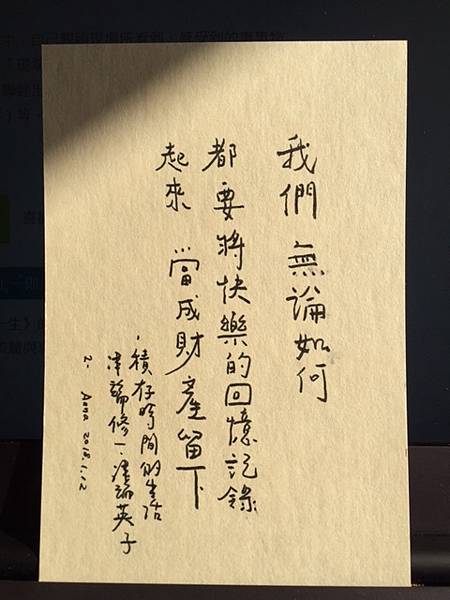 我們 無論如何
都要將快樂的回憶記錄
起來 當成財產留下
·積存時間的生活
津端修一·津端英子
2. Anna 2018.1.12